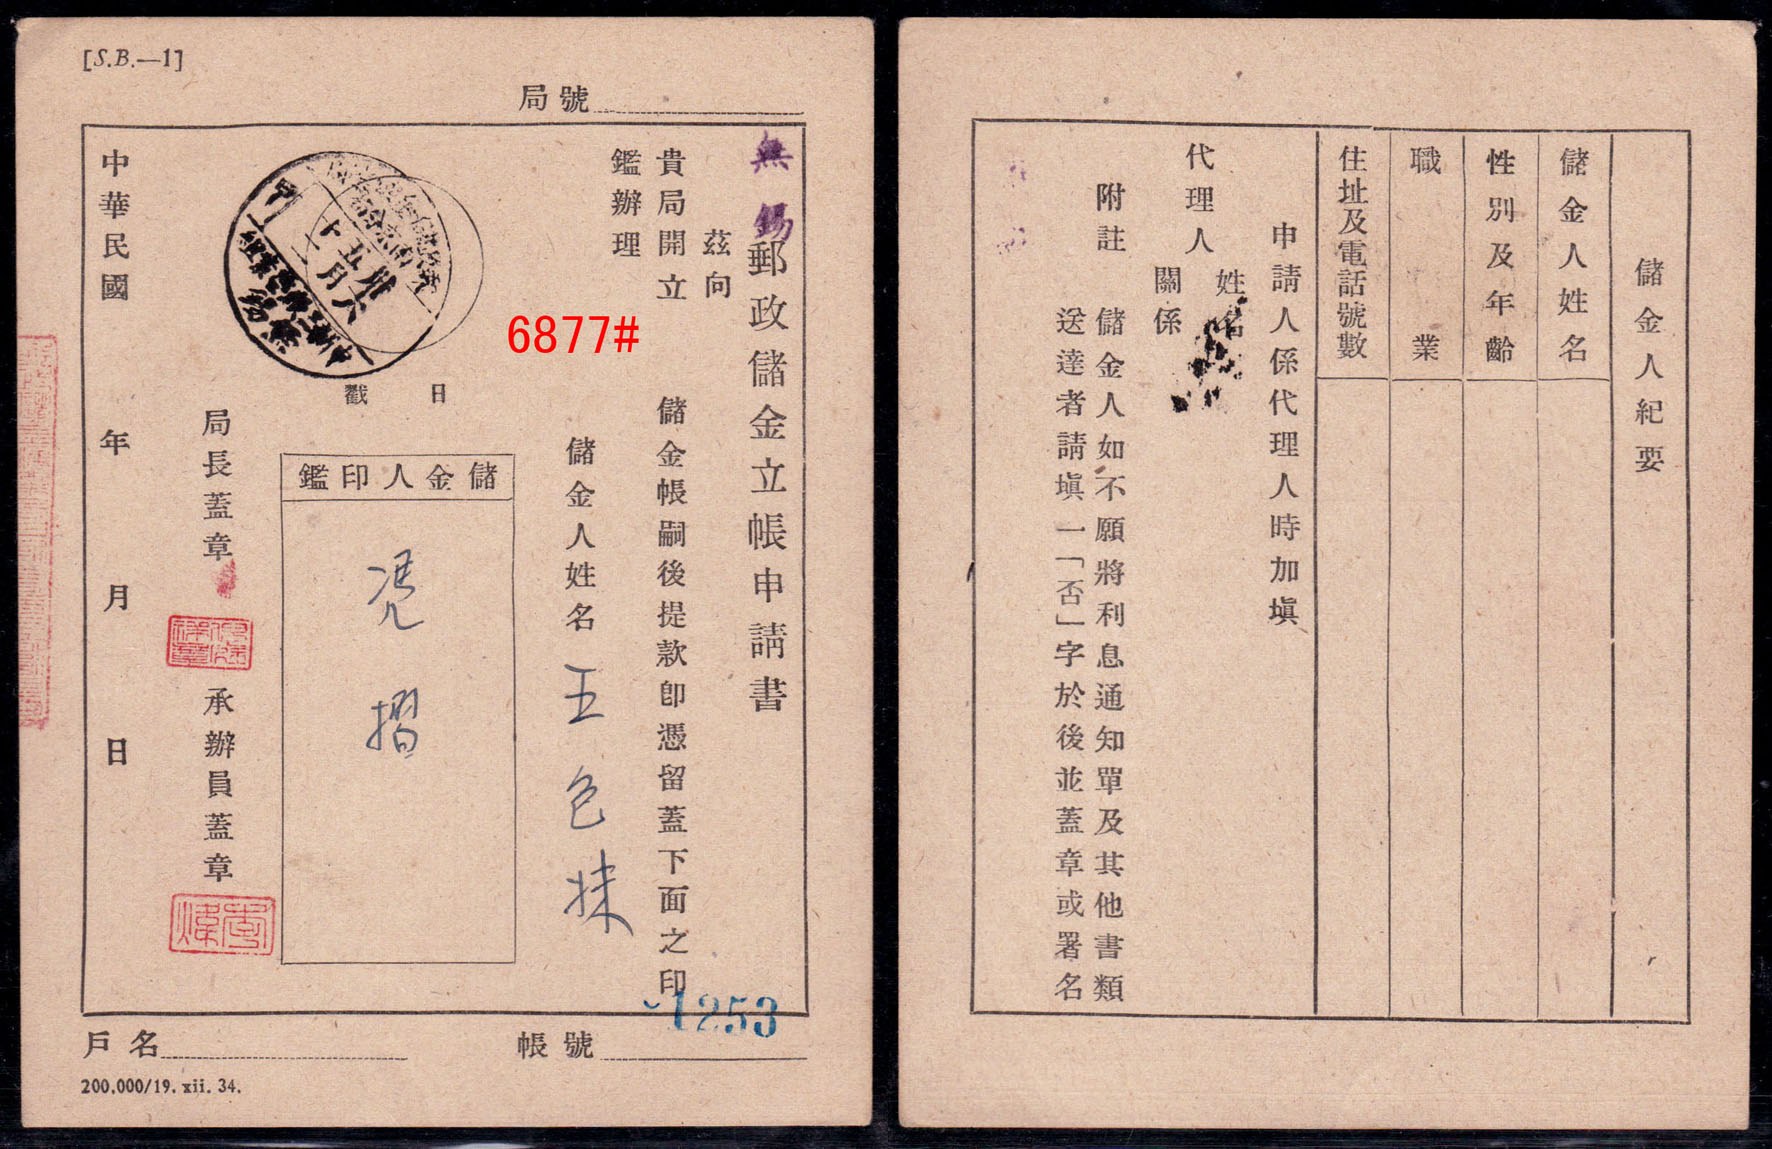 [S.B.—1]
局號
無錫郵政儲金立帳申請書
茲向
貴局開立　儲金帳嗣後提款卽憑留蓋下面之印
鑑辦理
儲金人姓名 王色妹
儲金人印鑑
凭摺
日戳
局長蓋章　承辦員蓋章
中華民國　年　月　日
6877#
1253
戶名
帳號
200,000/19. xii. 34.
儲金人紀要
儲金人姓名
性別及年齡
職業
住址及電話號數
申請人係代理人時加塡
代理人
姓名
關係
附註
儲金人如不願將利息通知單及其他書類
送達者請塡一「否」字於後並蓋章或署名